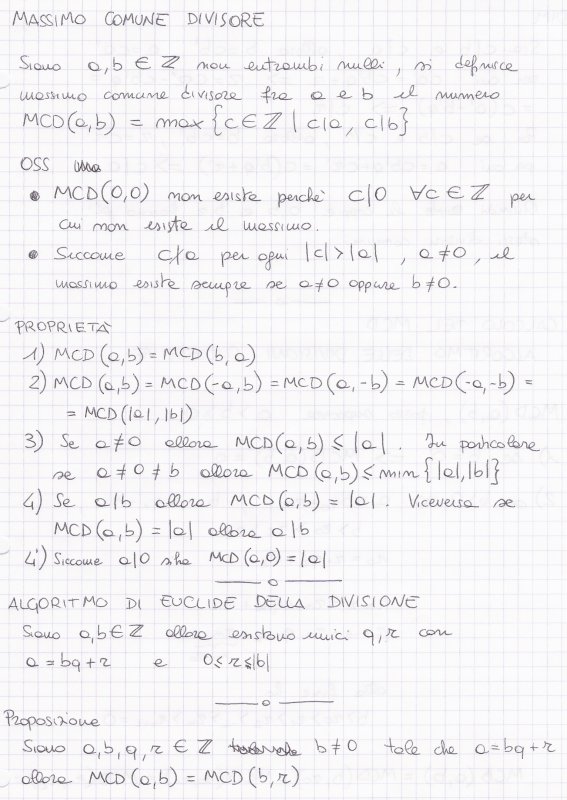 MASSIMO COMUNE DIVISORE
Siano a,b ∈ ℤ non entrambi nulli, si definisce
massimo comune divisore fra a e b il numero
MCD(a,b) = max{c ∈ ℤ | c|a, c|b}
OSS
• MCD(0,0) non esiste perchè c|0 ∀c ∈ ℤ per
cui non esiste il massimo.
• Siccome c∤a per ogni |c|>|a|, a≠0, il
massimo esiste sempre se a≠0 oppure b≠0.
PROPRIETÀ
1) MCD(a,b) = MCD(b,a)
2) MCD(a,b) = MCD(-a,b) = MCD(a,-b) = MCD(-a,-b) =
= MCD(|a|,|b|)
3) Se a≠0 allora MCD(a,b) ≤ |a|. In particolare
se a≠0≠b allora MCD(a,b) ≤ min{|a|,|b|}
4) Se a|b allora MCD(a,b) = |a|. Viceversa se
MCD(a,b) = |a| allora a|b
4') Siccome a|0 si ha MCD(a,0) = |a|
ALGORITMO DI EUCLIDE DELLA DIVISIONE
Siano a,b ∈ ℤ allora esistono unici q,r con
a = bq + r e 0 ≤ r ≤ |b|
Proposizione
Siano a,b,q,r ∈ ℤ b≠0 tale che a = bq + r
allora MCD(a,b) = MCD(b,r)